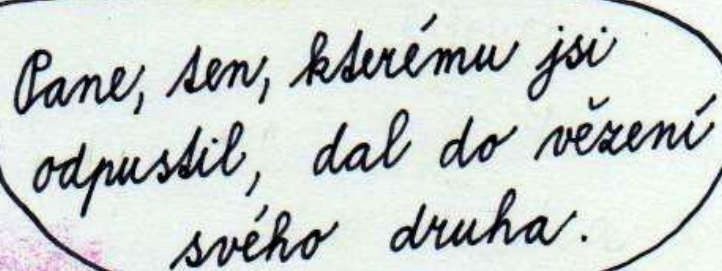 Pane, ten, kterému jsi
odpustil, dal do vězení
svého druha.